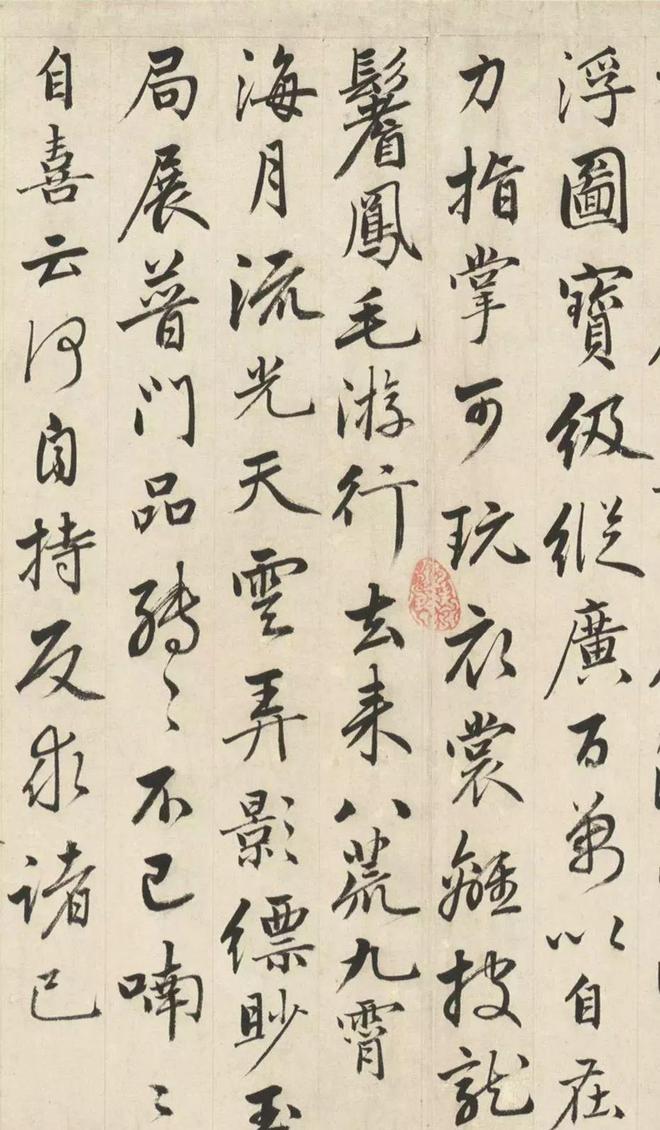 浮圖寶級縱廣百萬以自在
力指掌可玩衣裳離披龍
鬐鳳毛游行去来八荒九霄
海月流光天雲弄影縹眇玉
局展普門品轉〻不已喃〻
自喜云何自持反求諸已